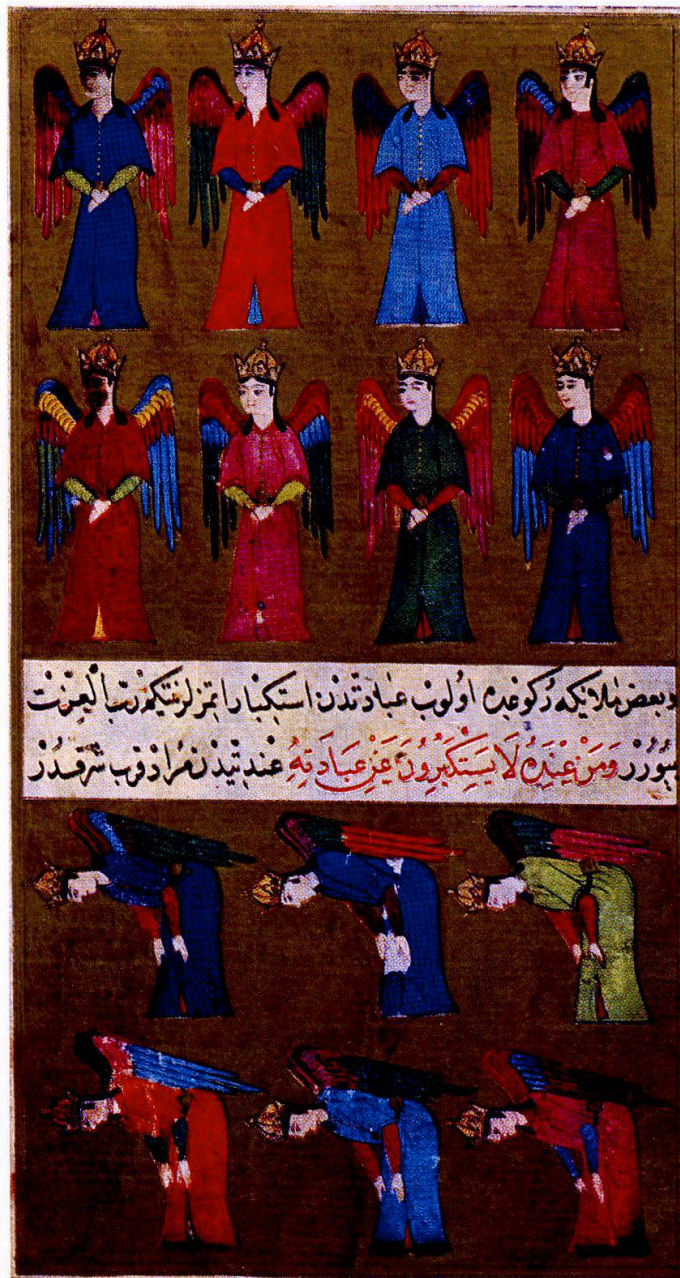 و بعض ملائكه ركوعده اولوب عبادتدن استكبار ايتمزلر نتكيم رب العزت
بيورر وَمَنْ عِنْدَهُ لَا يَسْتَكْبِرُونَ عَنْ عِبَادَتِهِ عنديتدن مراد قرب شرفدر